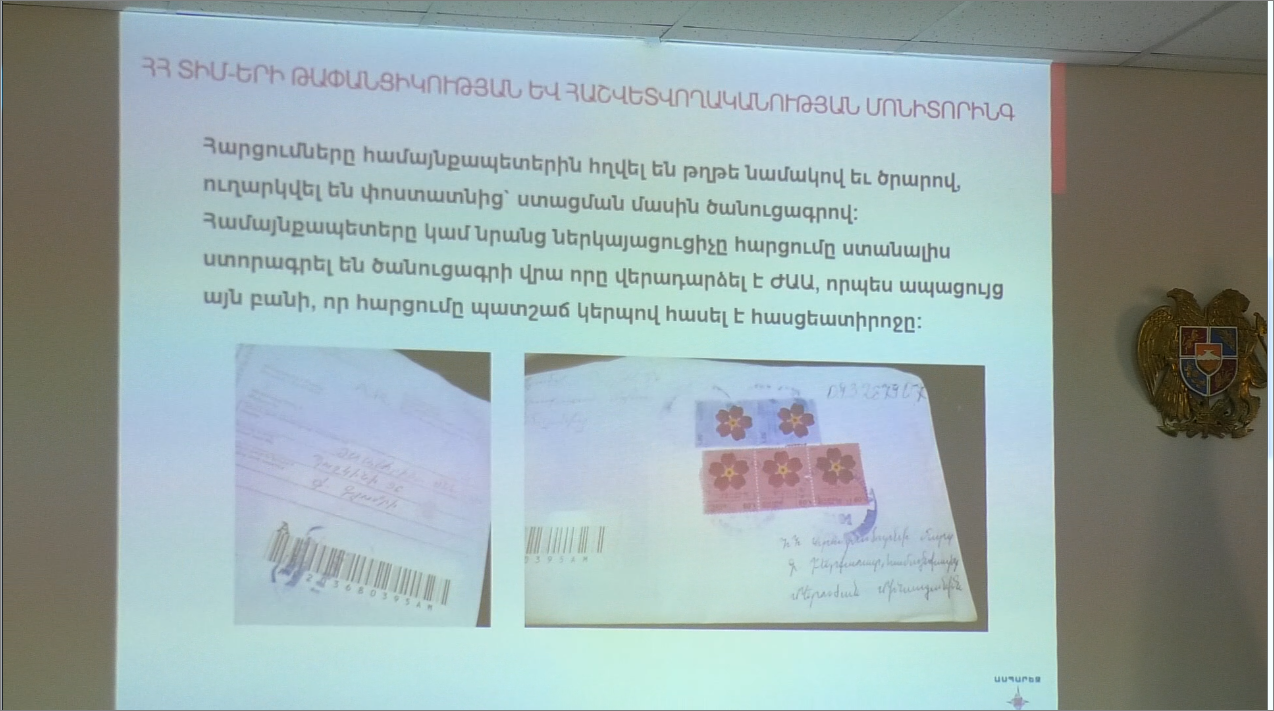 ՀՀ ՏԻՄ-ԵՐԻ ԹԱՓԱՆՑԻԿՈՒԹՅԱՆ ԵՎ ՀԱՇՎԵՏՎՈՂԱԿԱՆՈՒԹՅԱՆ ՄՈՆԻՏՈՐԻՆԳ
Հարցումները համայնքապետերին հղվել են թղթե նամակով եւ ծրարով,
ուղարկվել են փոստատնից` ստացման մասին ծանուցագրով:
Համայնքապետերը կամ նրանց ներկայացուցիչը հարցումը ստանալիս
ստորագրել են ծանուցագրի վրա որը վերադարձել է ԺԱԱ, որպես ապացույց
այն բանի, որ հարցումը պատշաճ կերպով հասել է հասցեատիրոջը:
ԱՍՊԱՐԵԶ